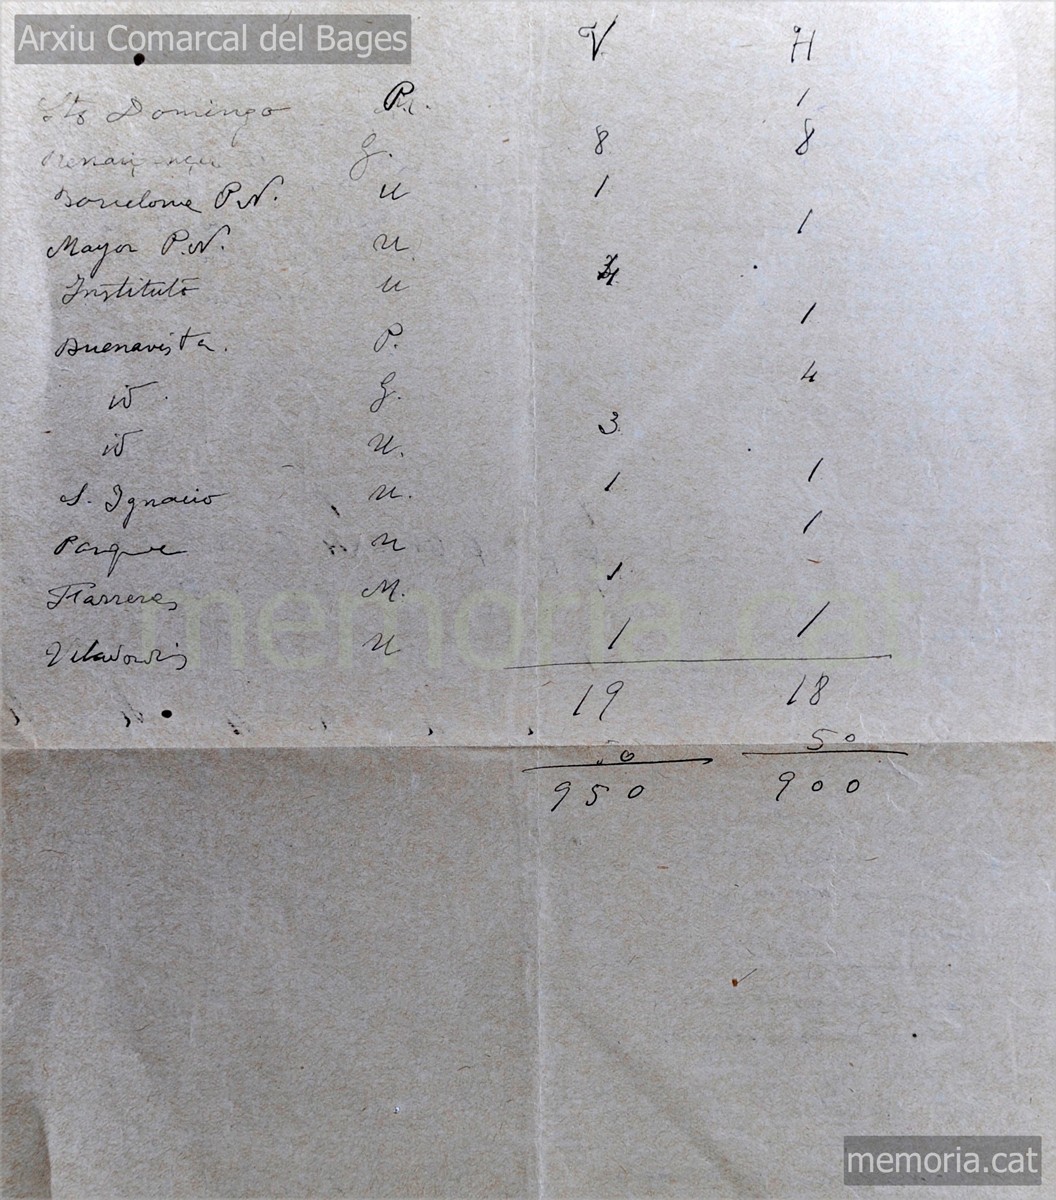 Arxiu Comarcal del Bages
V H
Sto Domingo P. 1
Renaixença G. 8 8
Barcelona P.N. U 1
Mayor P.N. U. 1
Instituto U 4
Buenavista. P. 1
id. G. 4
id U. 3
S. Ignacio U. 1 1
Parque U 1
Farreras M. 1
Viladordis U 1 1
19 18
50
950 900
memoria.cat
memoria.cat